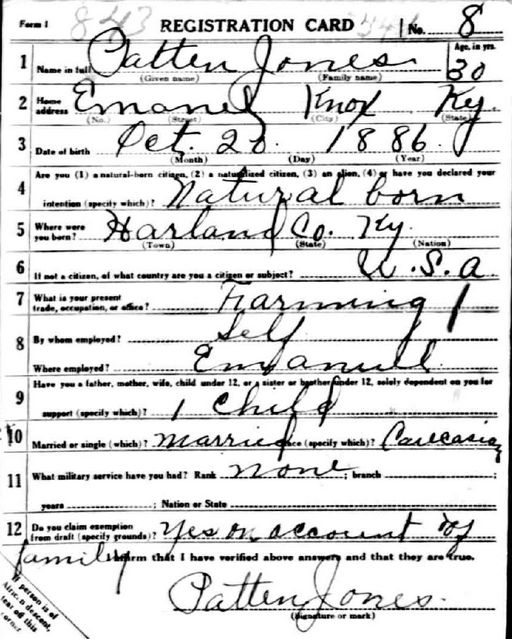 Form 1 843 REGISTRATION CARD No. 8
1 Name in full Patten Jones Age, in yrs. 30
(Given name) (Family name)
2 Home address Emanel Knox Ky.
(No.) (Street) (City) (State)
3 Date of birth Oct. 20 1886
(Month) (Day) (Year)
4 Are you (1) a natural-born citizen, (2) a naturalized citizen, (3) an alien, (4) or have you declared your
intention (specify which)? Natural born
5 Where were you born? Harland Co. Ky.
(Town) (State) (Nation)
6 If not a citizen, of what country are you a citizen or subject? U.S.a
7 What is your present trade, occupation, or office? Farming
8 By whom employed? Self
Where employed? Emanuell
9 Have you a father, mother, wife, child under 12, or a sister or brother under 12, solely dependent on you for
support (specify which)? 1 Child
10 Married or single (which)? married (specify which)? Caucasian
11 What military service have you had? Rank none ; branch ;
years ; Nation or State
12 Do you claim exemption from draft (specify grounds)? Yes on account of
family I affirm that I have verified above answers and that they are true.
Patten Jones.
(Signature or mark)
person is of
African descent,
tear off this
corner